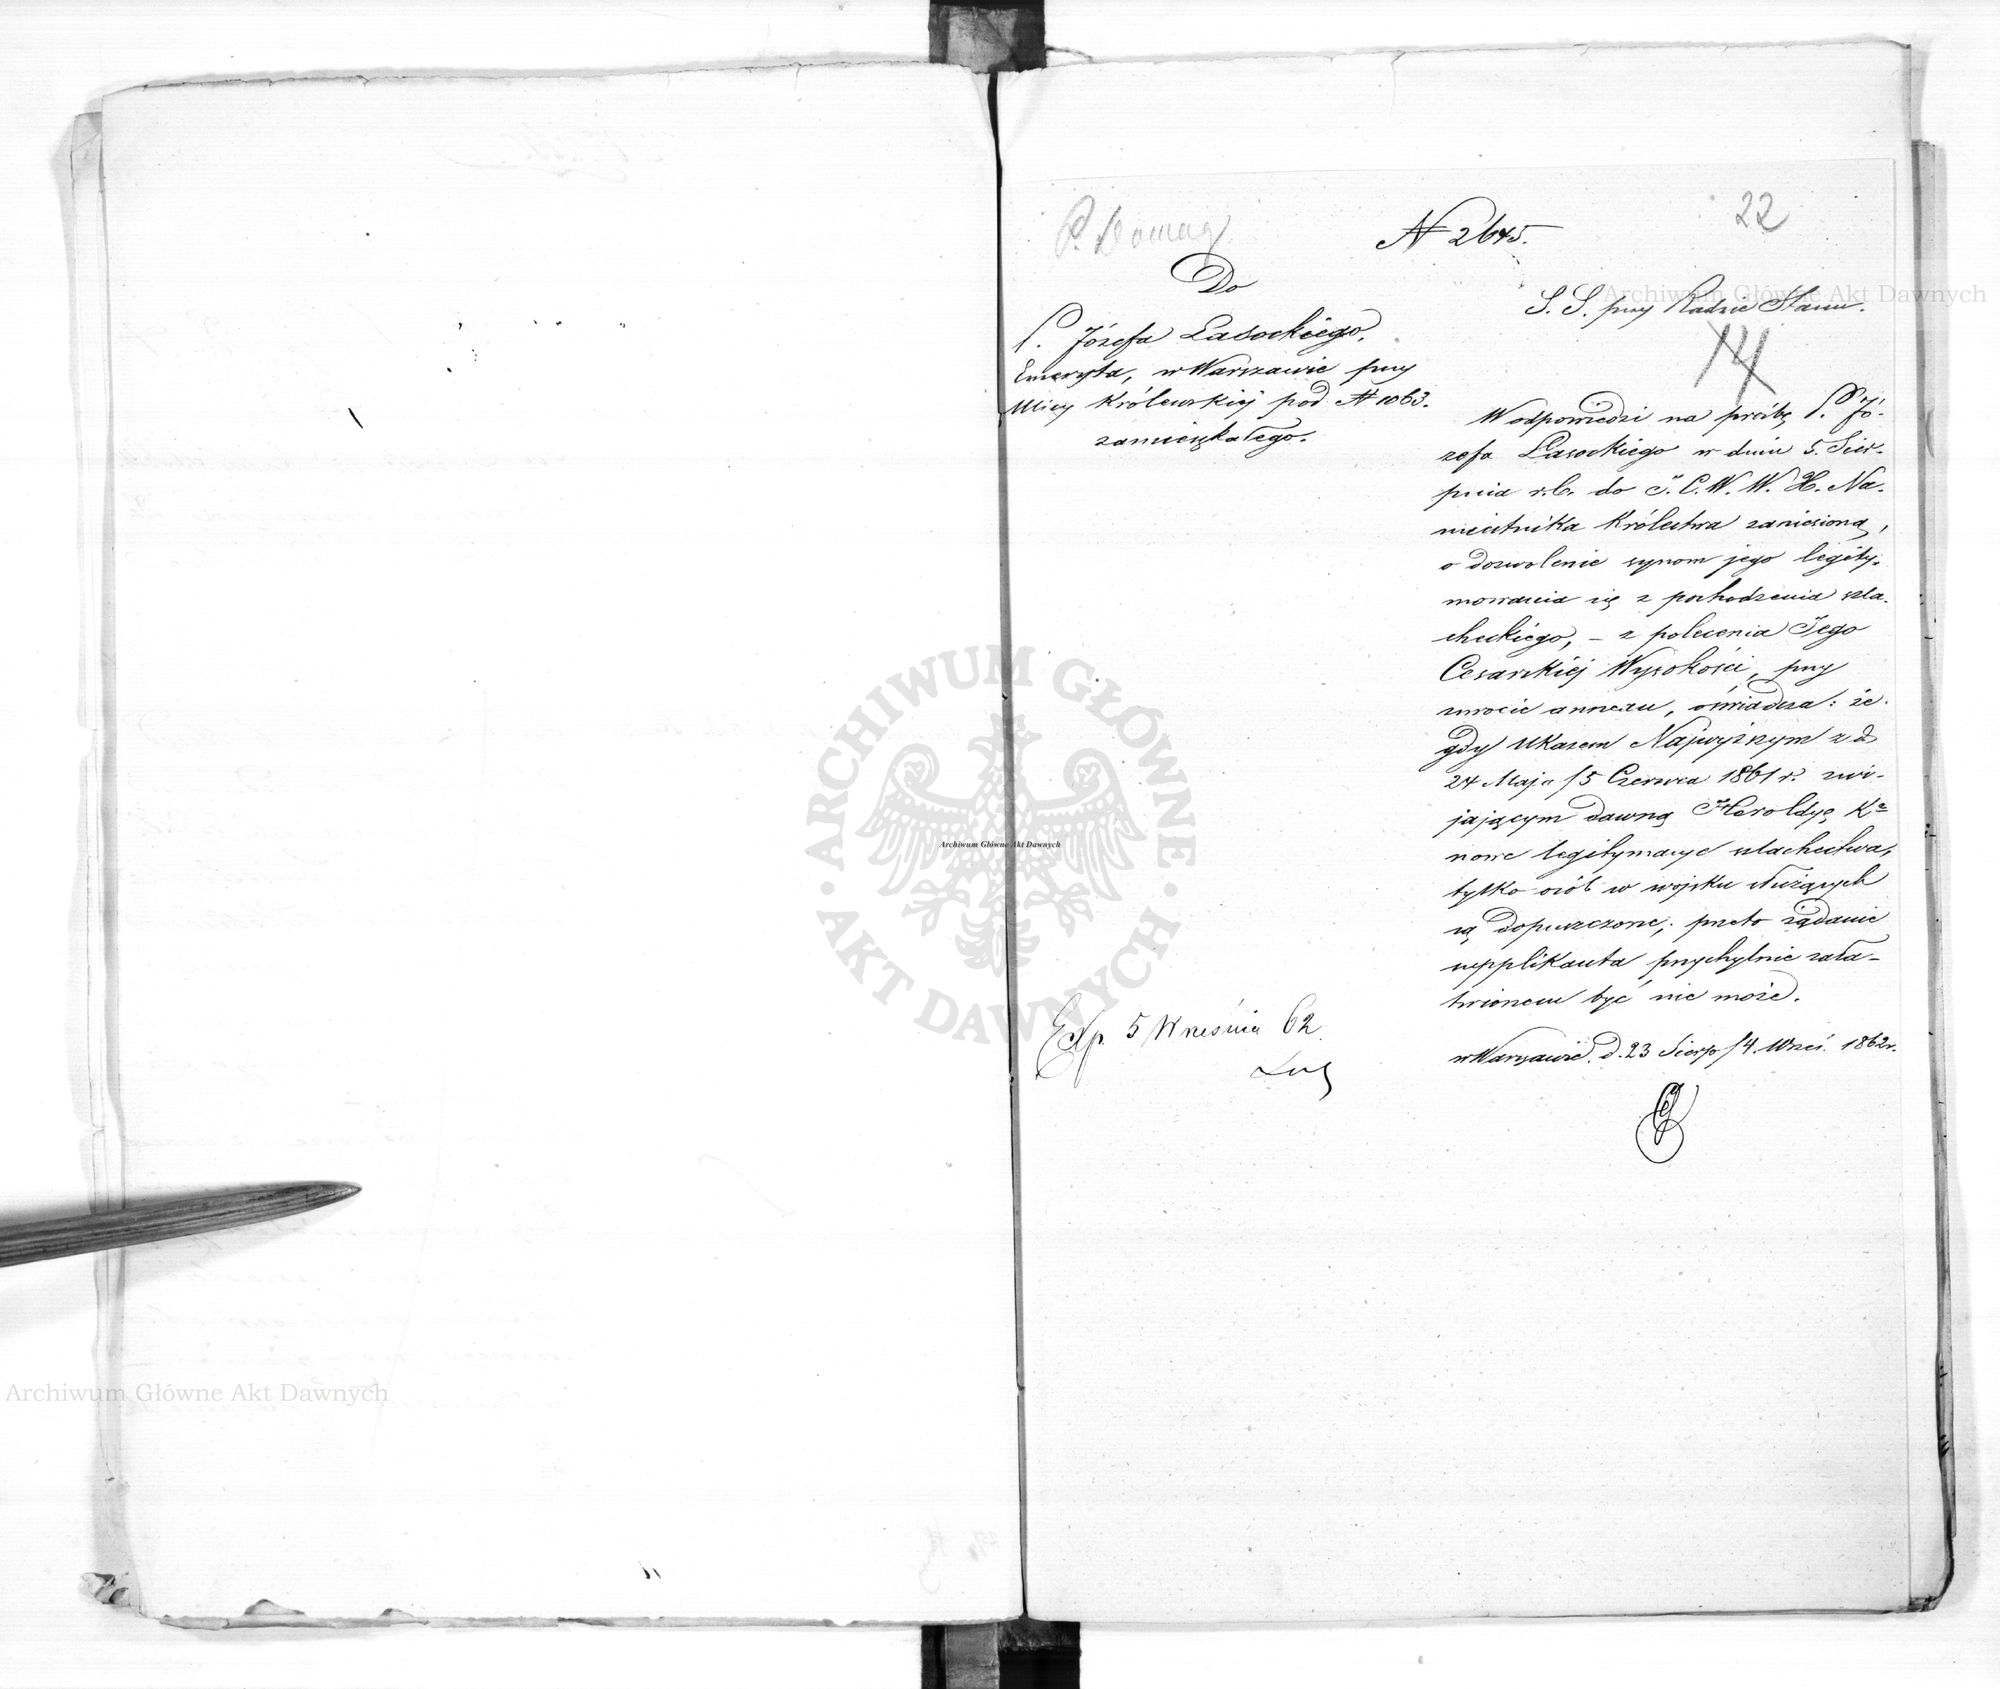 P. Domag
N 2645.
22
Do
P. Józefa Lasockiego,
Emeryta, w Warszawie przy
Ulicy Królewskiej pod N 1063.
zamieszkałego.
S. S. przy Radzie Stanu.
14
W odpowiedzi na prośbę P. Jó-
zefa Lasockiego w dniu 5. Sier-
pnia r.b. do J. C. W. W. X. Na-
miestnika Królestwa zaniesioną,
o dozwolenie synom jego legity-
mowania się z pochodzenia szla-
checkiego, – z polecenia Jego
Cesarskiej Wysokości, przy
zwrocie annexu, oświadcza: że
gdy Ukazem Najwyższym z d.
24 Maja / 5 Czerwca 1861 r. zwi-
jającym dawną Heroldyę Ka
nowe legitymacye szlachectwa,
tylko osób w wojsku służących
są dopuszczone; przeto żądanie
supplikanta przychylnie zała-
twionem być nie może.
w Warszawie. d. 23 Sierp / 4. Wrześ. 1862 r.
Exp. 5 Września 62.
Archiwum Główne Akt Dawnych
ARCHIWUM GŁÓWNE
AKT DAWNYCH
Archiwum Główne Akt Dawnych
Archiwum Główne Akt Dawnych